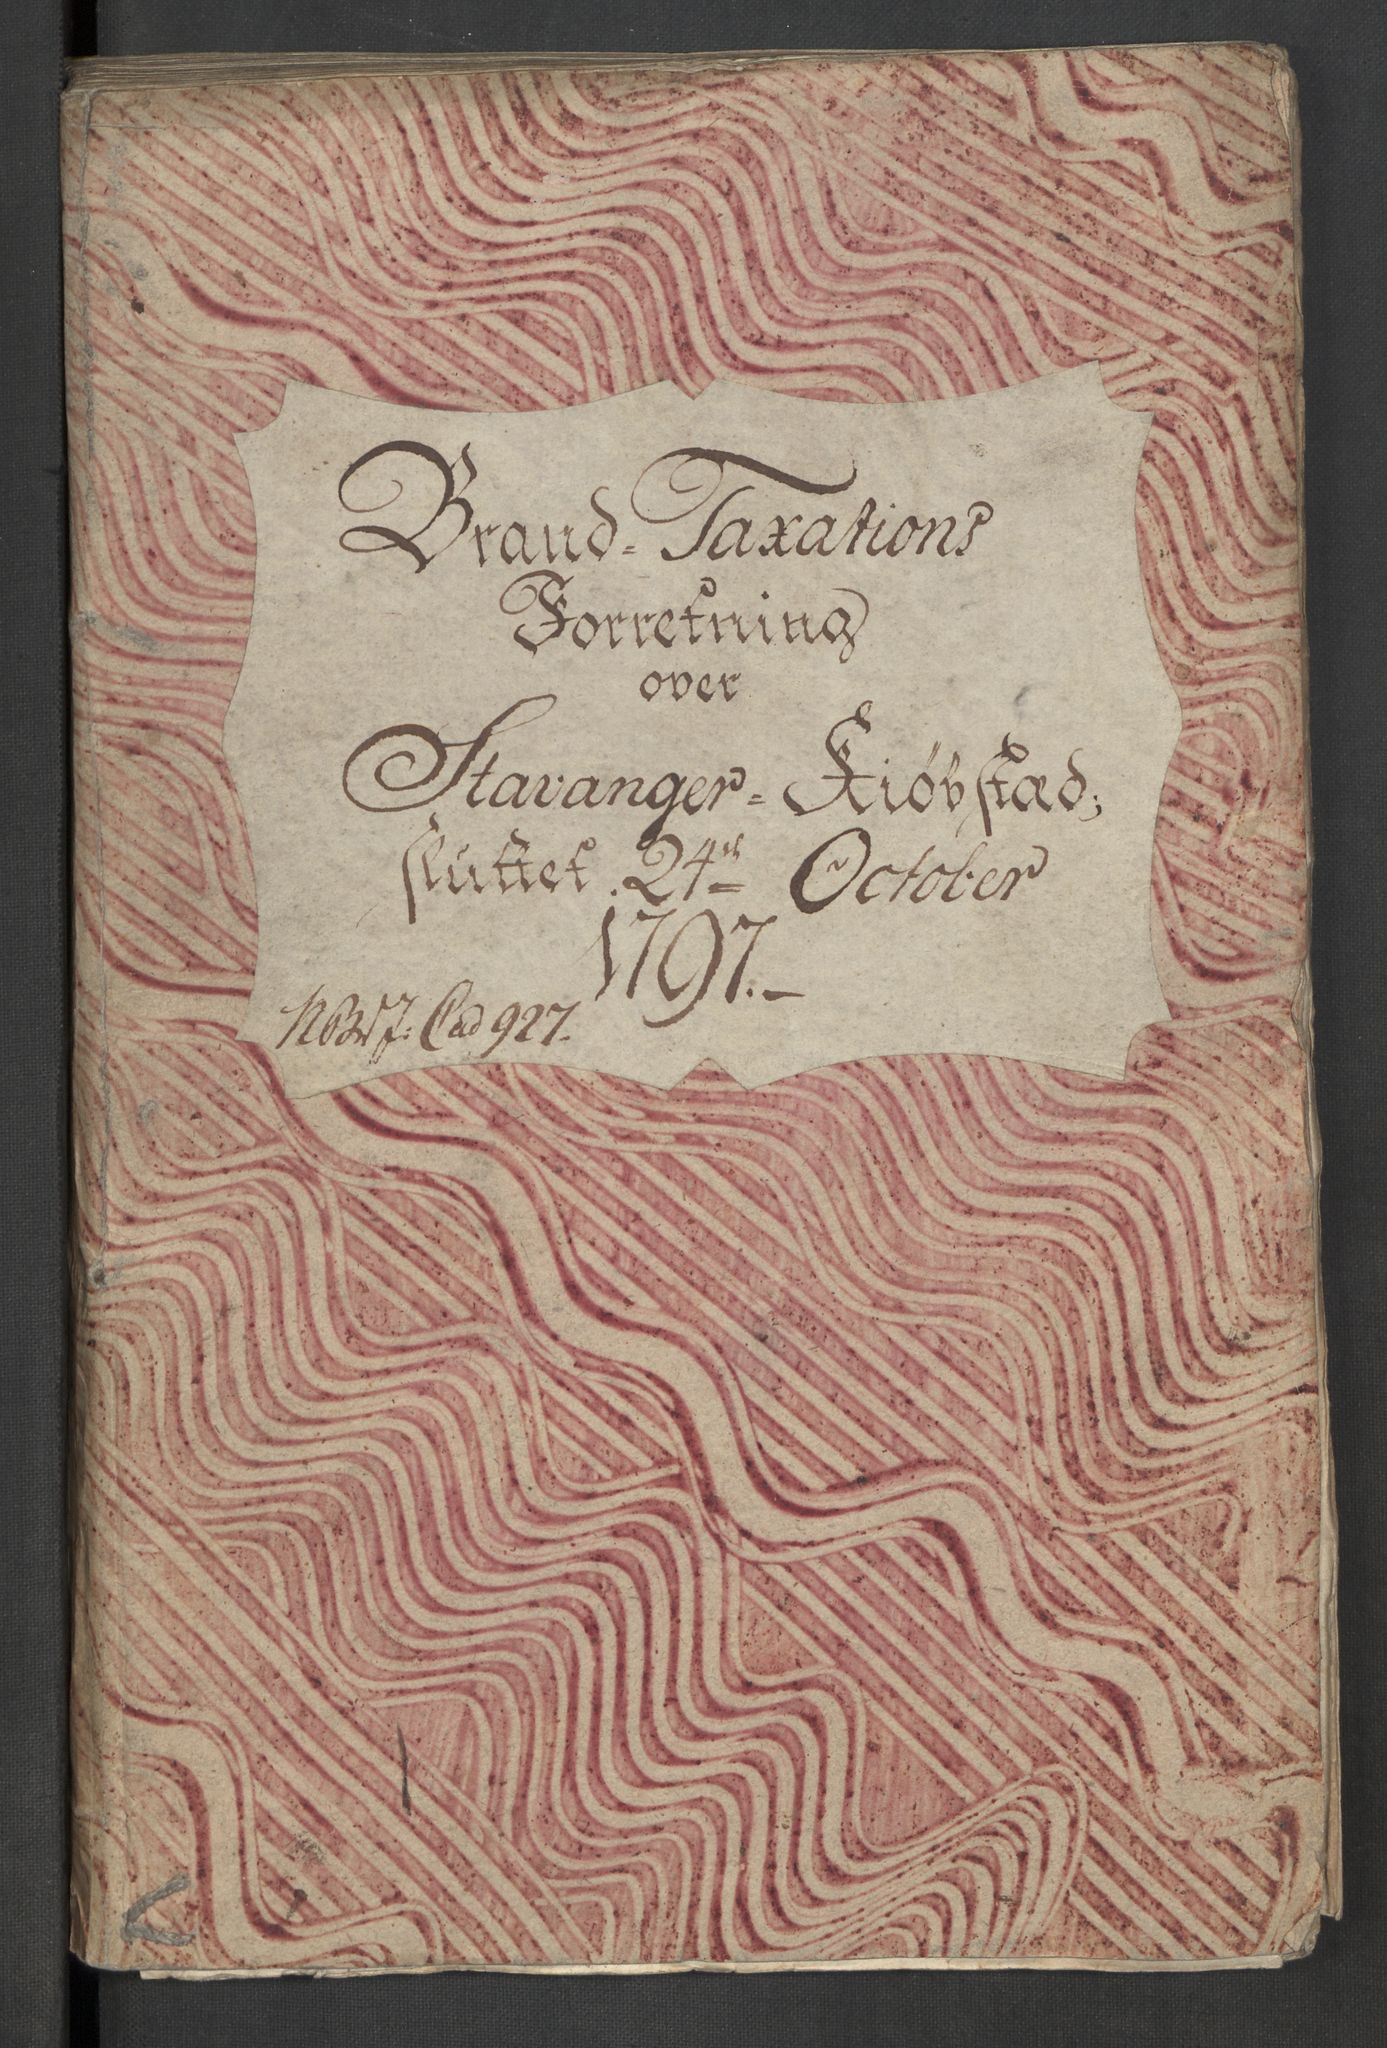 Brand-Taxations
Forretning
over
Stavanger-Kiøbstæd,
sluttet 24de October
1797.
Cad 927.